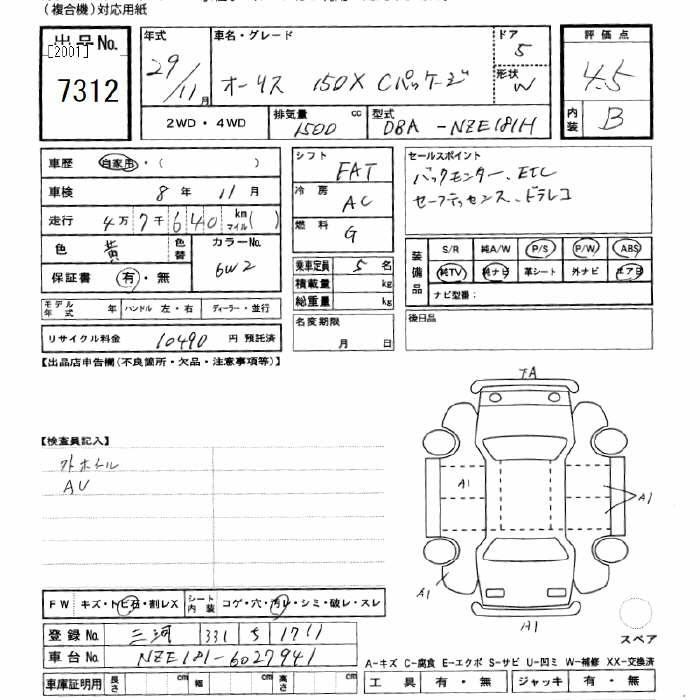 (複合機)対応用紙
出品No.
[2001]
7312
年式
29/11月
車名・グレード
オーリス 150X Cパッケージ
ドア
5
形状
W
評価点
4.5
内装
B
2WD・4WD
排気量
1500 cc
型式
DBA-NZE181H
車歴 自家用・( )
車検 8年 11月
走行 4万7千640 kmマイル( )
色 黄 色替
カラーNo.
6W2
保証書 有・無
モデル年式 年 ハンドル 左・右 ディーラー・並行
リサイクル料金 10490 円 預託済
シフト
FAT
冷房
AC
燃料
G
乗車定員 5名
積載量 kg
総重量 kg
名変期限
月 日
セールスポイント
バックモニター、ETC
セーフティセンス、ドラレコ
装備品
S/R 純A/W P/S P/W ABS
純TV 純ナビ 革シート 外ナビ エアB
ナビ型番:
後日品
【出品店申告欄(不良箇所・欠品・注意事項等)】
【検査員記入】
外ホイル
AU
TA
A1
A1
A1
A1
スペア
FW キズ・トビ石・割レX シート内装 コゲ・穴・汚レ・シミ・破レ・スレ
登録No. 三河 331 ち 1711
車台No. NZE181-6027941
車庫証明用 長さ cm 幅 cm 高さ cm
A-キズ C-腐食 E-エクボ S-サビ U-凹ミ W-補修 XX-交換済
工具 有・無 ジャッキ 有・無